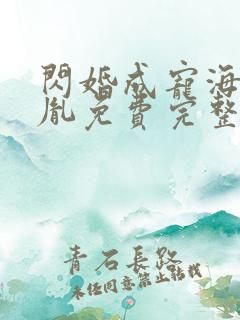 閃婚成寵海
胤免費完整
青石長路
未經同意禁止轉載